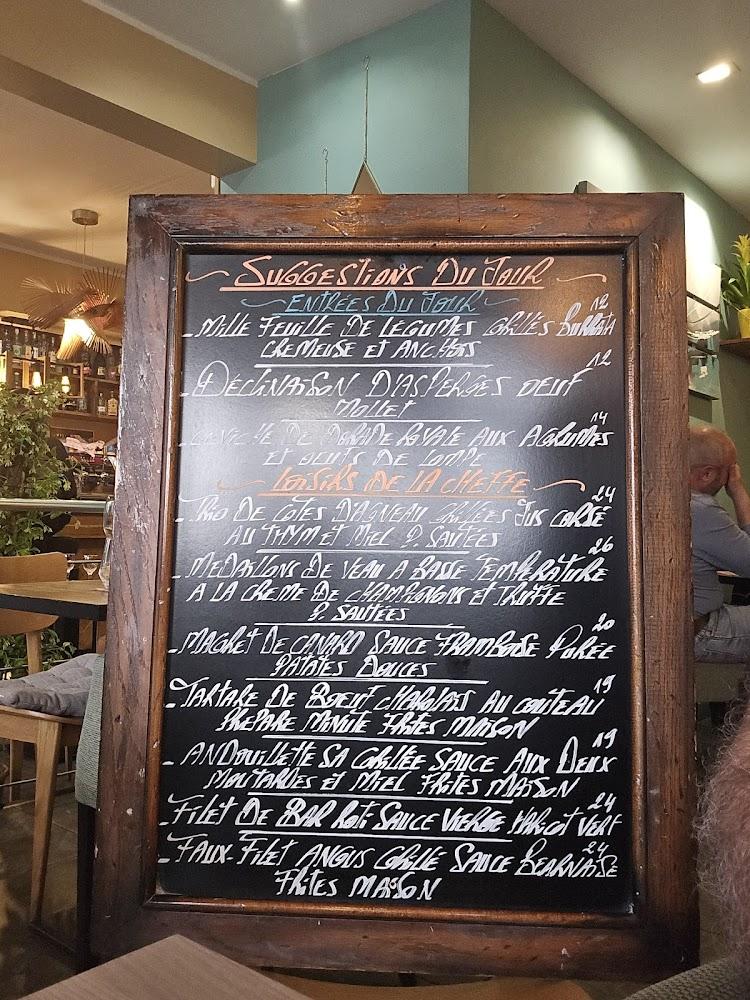 SUGGESTIONS DU JOUR
ENTRÉES DU JOUR
- MILLE FEUILLE DE LEGUMES GRILLÉS BURRATA 12
CREMEUSE ET ANCHOIS
- DÉCLINAISON D'ASPERGES OEUF 12
MOLLET
- CEVICHE DE DORADE ROYALE AUX AGRUMES 14
ET OEUFS DE LOMPE
LOISIRS DE LA CHEFFE
- TRIO DE COTES D'AGNEAU GRILLÉES JUS CORSÉ 24
AU THYM ET MIEL P. SAUTÉES
- MEDAILLONS DE VEAU A BASSE TEMPERATURE 26
A LA CREME DE CHAMPIGNONS ET TRUFFE
P. SAUTÉES
- MAGRET DE CANARD SAUCE FRAMBOISE PUREE 20
PATATES DOUCES
- TARTARE DE BOEUF CHAROLAIS AU COUTEAU 19
PREPARE MINUTE FRITES MAISON
- ANDOUILLETTE 5A GRILLÉE SAUCE AUX DEUX 19
MOUTARDES ET MIEL FRITES MAISON
- FILET DE BAR ROTI SAUCE VIERGE HARICOT VERT 24
- FAUX-FILET ANGUS GRILLÉ SAUCE BEARNAISE 24
FRITES MAISON